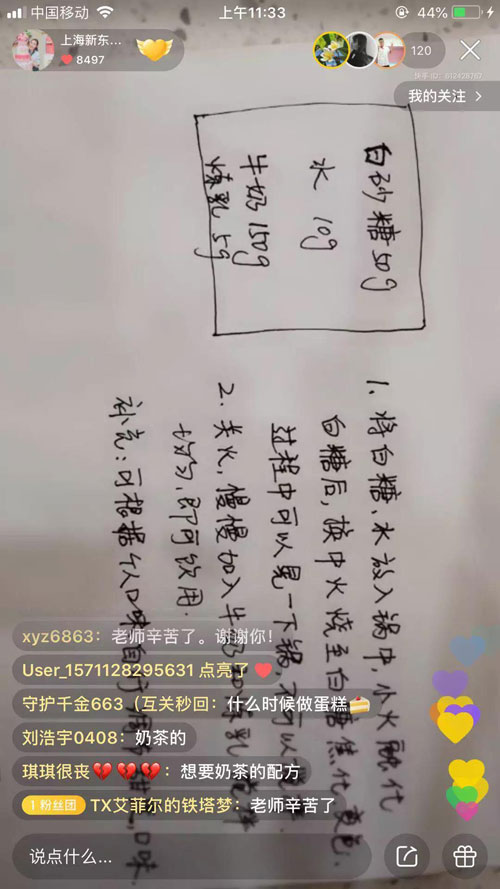 中国移动
上午11:33
44%
上海新东...
8497
120
快手 ID: 612428782
我的关注 >
白砂糖 50g
水 10g
牛奶 150g
炼乳 5g
1. 将白糖、水放入锅中,小火融化
白糖后,换中火烧至白糖焦化变色.
过程中可以晃一下锅,
2. 关火,慢慢加入牛奶
均匀,即可饮用.
补充:可根据个人口味自行
口味
xyz6863:老师辛苦了。谢谢你!
User_1571128295631 点亮了
守护千金663(互关秒回:什么时候做蛋糕🍰
刘浩宇0408:奶茶的
琪琪很丧💔💔💔:想要奶茶的配方
1 粉丝团 TX艾菲尔的铁塔梦:老师辛苦了
说点什么...